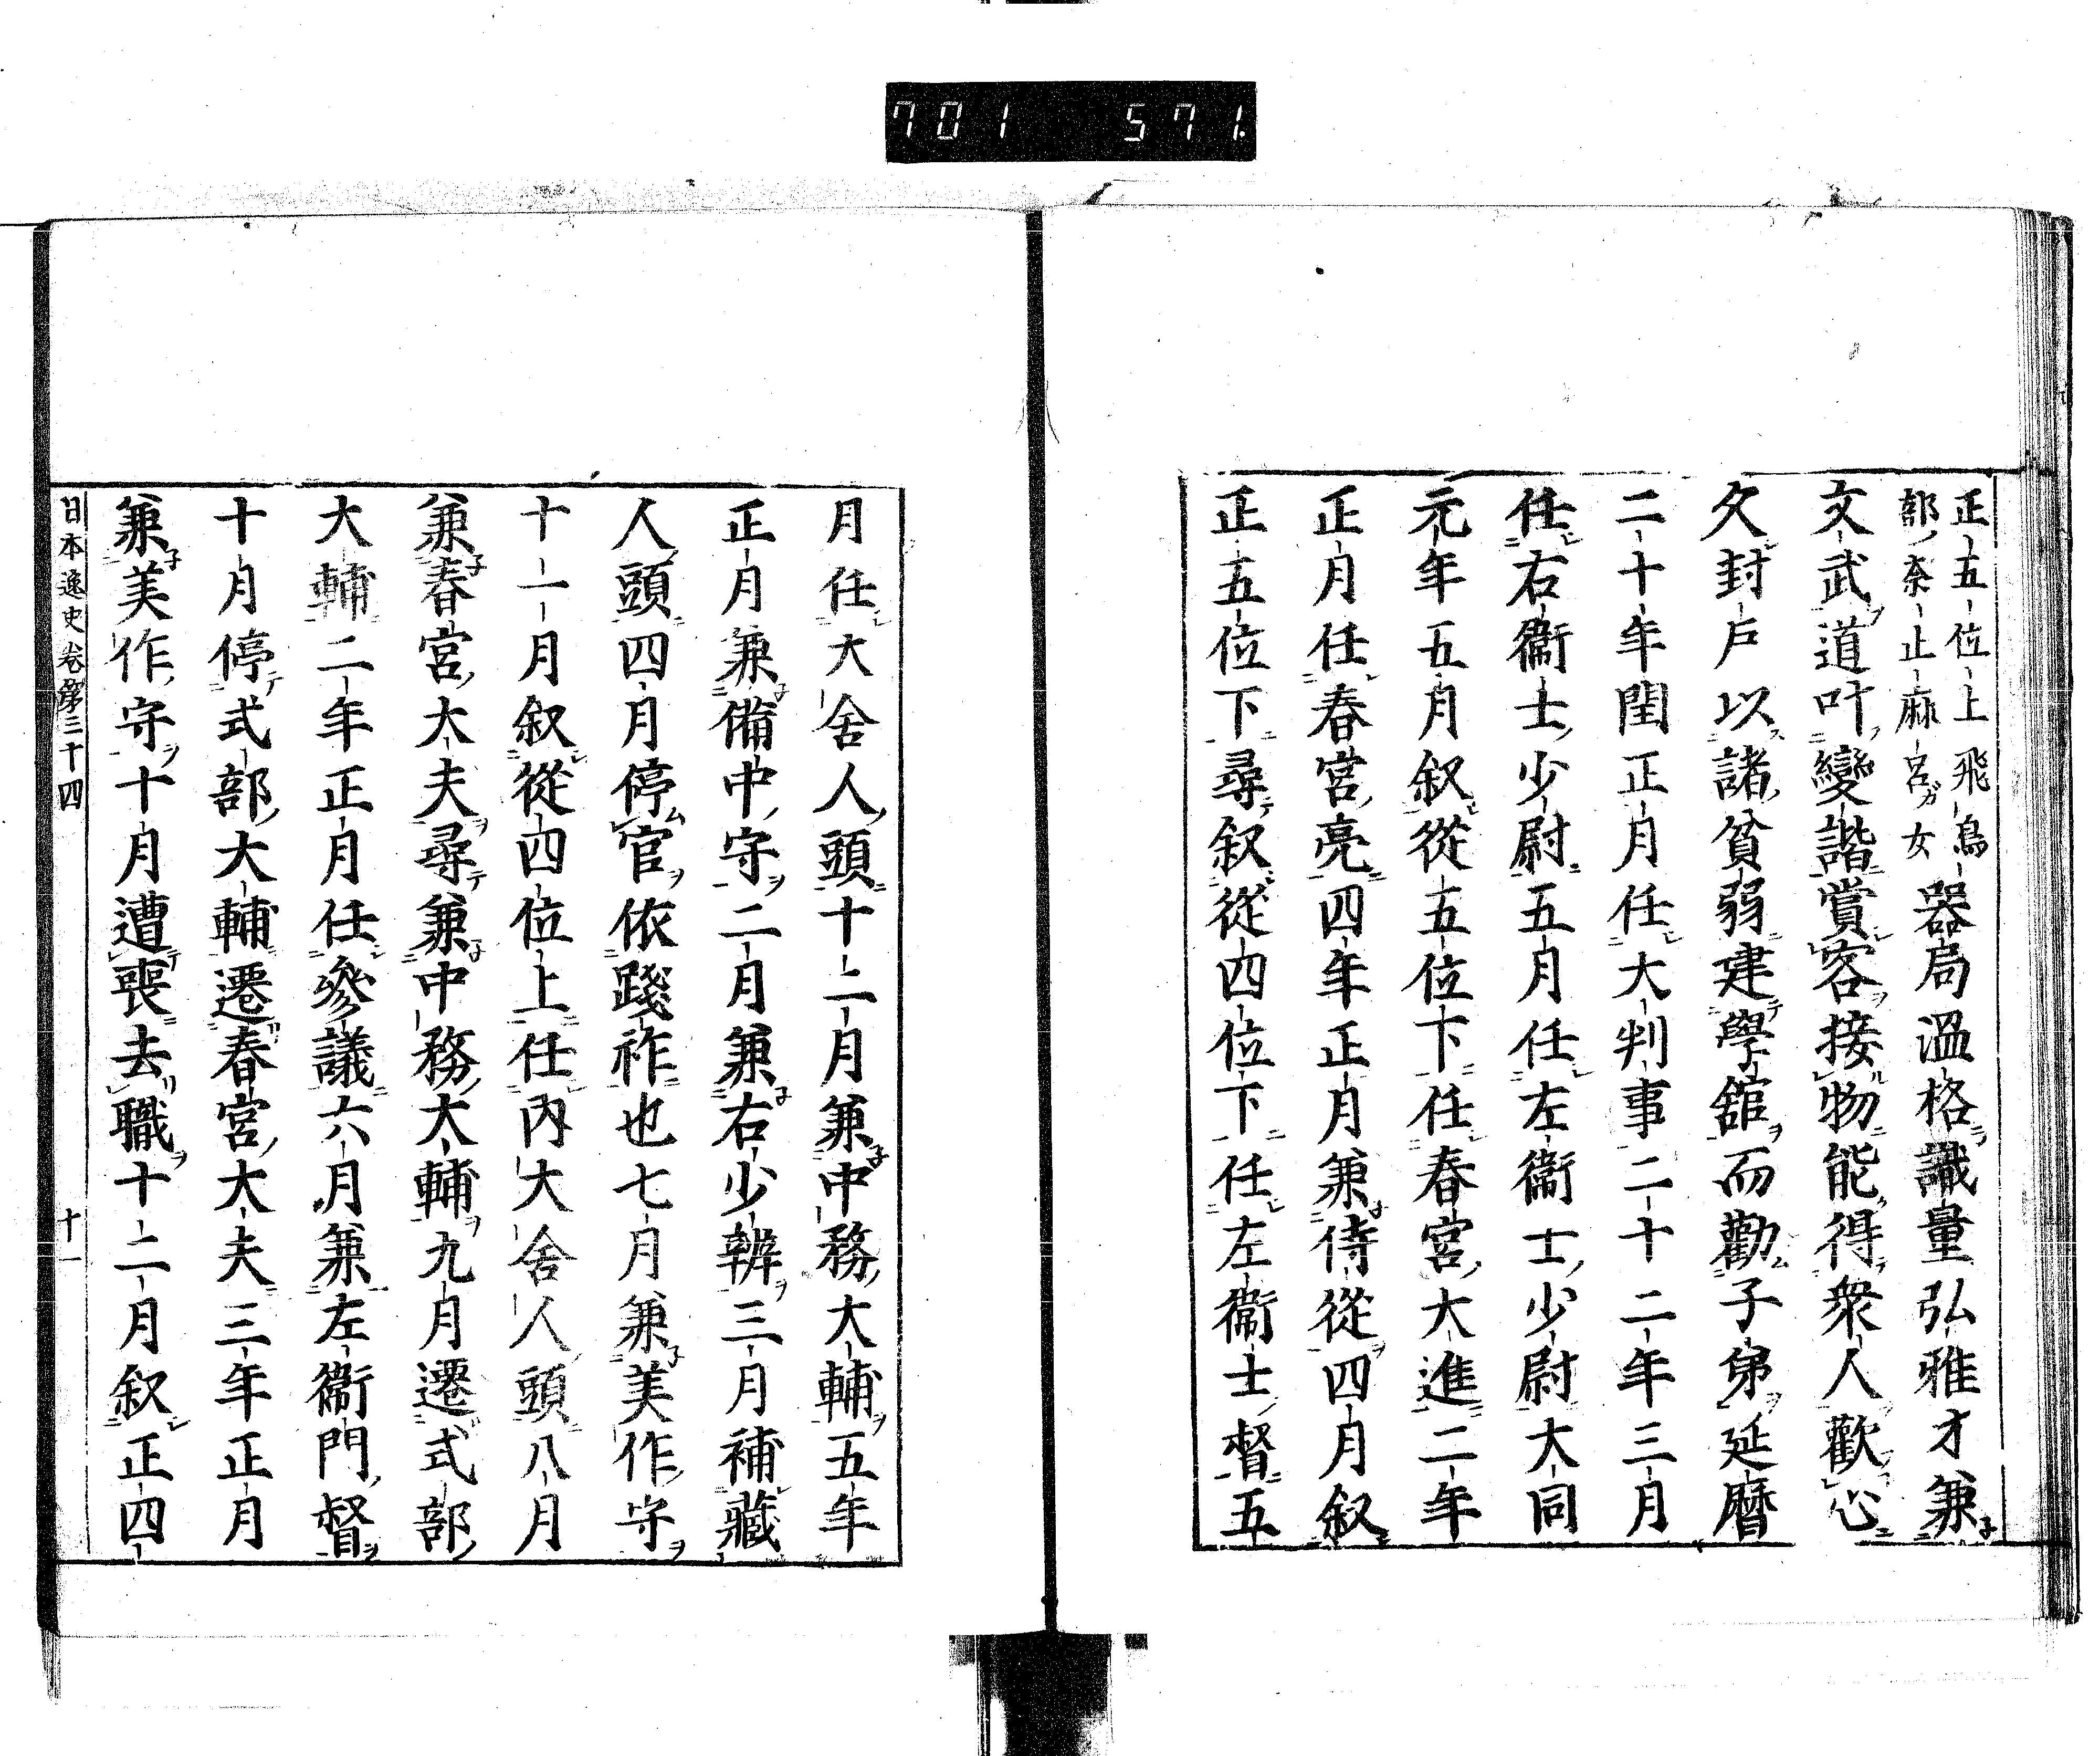 701 571
正五位上飛鳥
部奈止麻呂女
器局温格識量弘雅才兼
文武道叶變諧賞客接物能得衆人歡心
久封戸以諸貧弱建學舘而勸子弟延暦
二十年閏正月任大判事二十二年三月
任右衞士少尉五月任左衞士少尉大同
元年五月叙從五位下任春宮大進二年
正月任春宮亮四年正月兼侍從四月叙
正五位下尋叙從四位下任左衞士督五
月任大舎人頭十二月兼中務大輔五年
正月兼備中守二月兼右少辨三月補藏
人頭四月停官依踐祚也七月兼美作守
十一月叙從四位上任内大舎人頭八月
兼春宮大夫尋兼中務大輔九月遷式部
大輔二年正月任參議六月兼左衞門督
十月停式部大輔遷春宮大夫三年正月
兼美作守十月遭喪去職十二月叙正四
日本逸史卷第三十四 十一